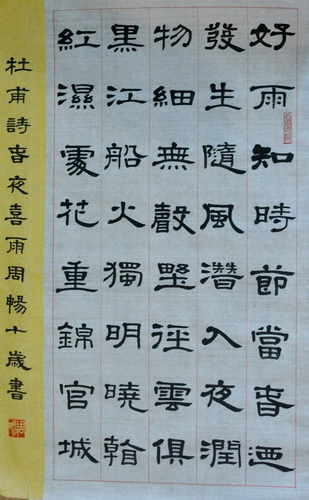 好雨知時節當春迺
發生隨風潛入夜潤
物細無聲墅徑雲俱
黑江船火獨明曉看
紅濕處花重錦官城
杜甫詩春夜喜雨周暢十歲書